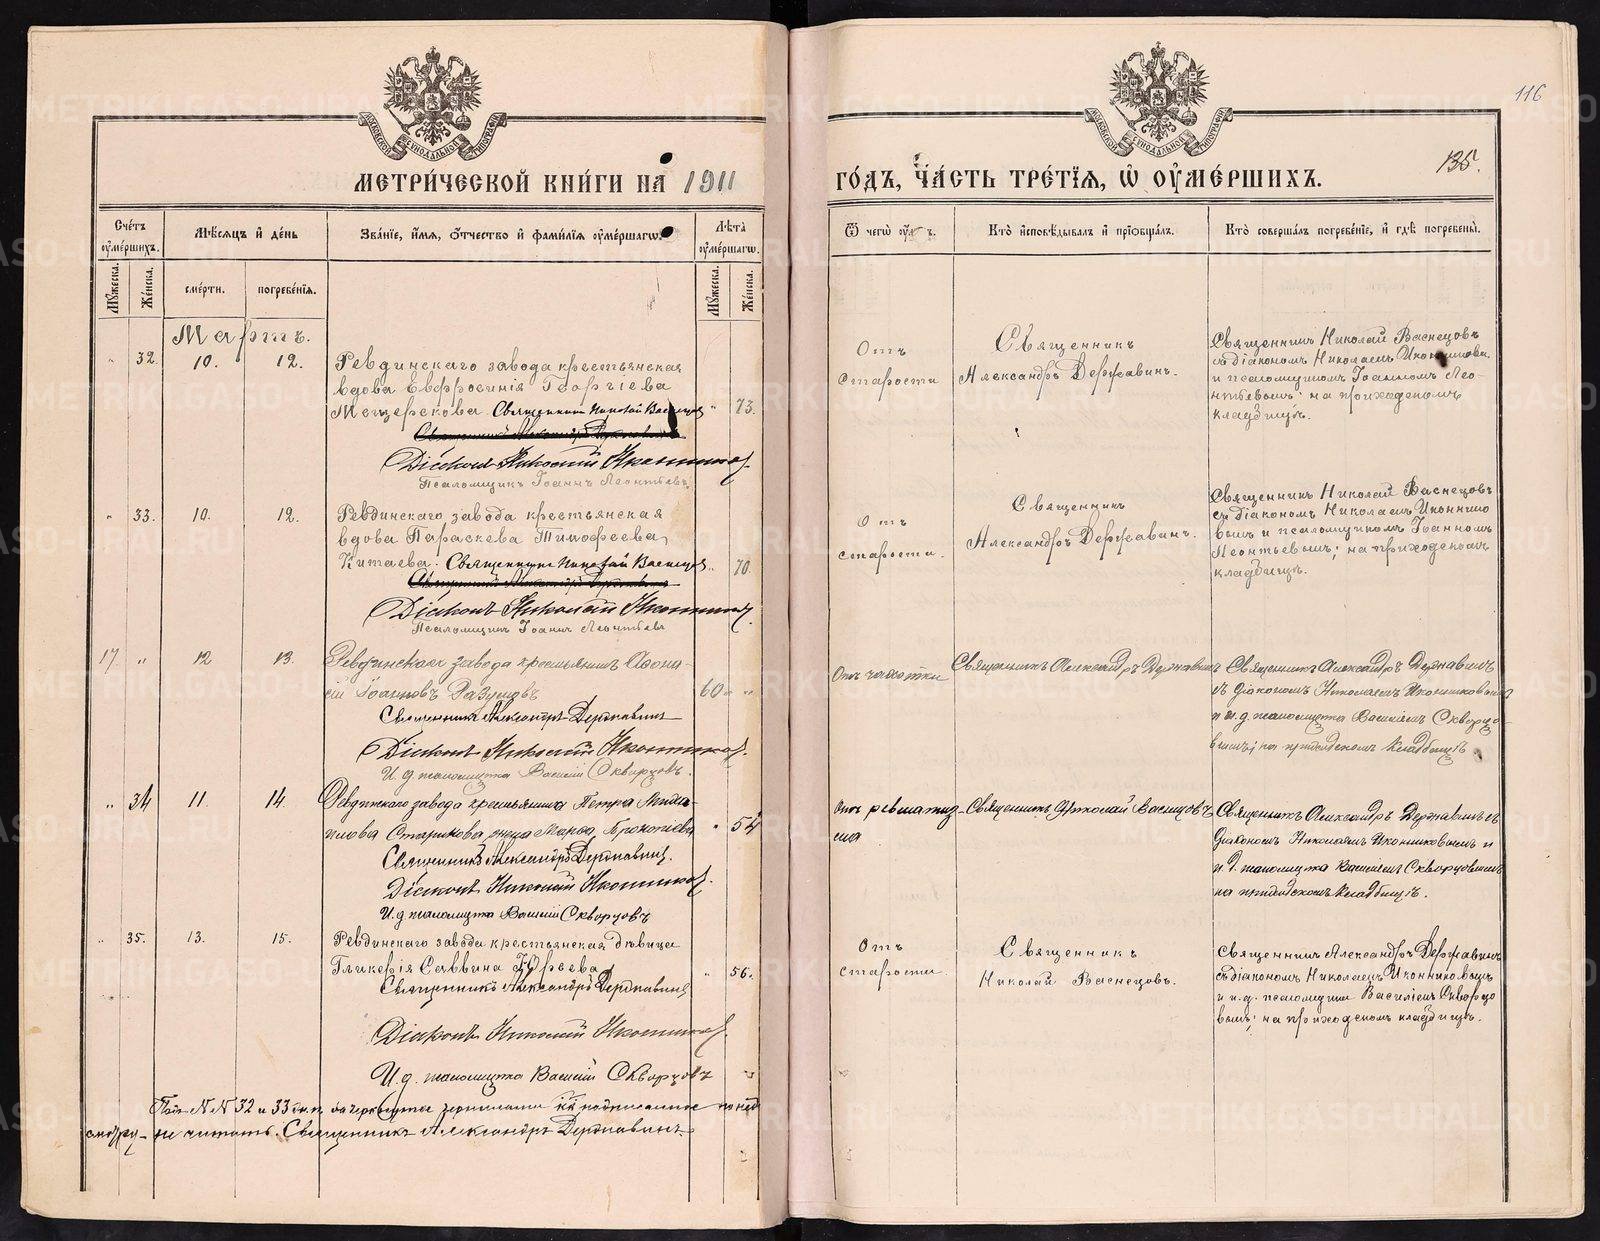 116
135.
МЕТРИ́ЧЕСКОЙ КНИ́ГИ НА 1911
ГО́ДЪ, ЧА́СТЬ ТРЕ́ТЇѦ, Ѡ҆ ОУ҆МЕ́РШИХЪ.
МОСКОВСКОЙ СѴНОДАЛЬНОЙ ТИПОГРАФІИ
МОСКОВСКОЙ СѴНОДАЛЬНОЙ ТИПОГРАФІИ
Сче́тъ оу҆ме́ршихъ.
Мѣ́сѧцъ и҆ де́нь
Зва́нїе, и҆́мѧ, ѻ҆́тчество и҆ фами́лїѧ оу҆ме́ршагѡ.
Лѣ́та оу҆ме́ршагѡ.
Ѿ чегѡ̀
Кто̀ и҆сповѣ́дывалъ и҆ прїѡбща́лъ.
Кто̀ соверша́лъ погребе́нїе, и҆ гдѣ̀ погребены̀.
Мꙋ́жеска.
Же́нска.
сме́рти.
погребе́нїѧ.
Мꙋ́жеска.
Же́нска.
Мартъ.
" 32. 10. 12.
Ревдинскаго завода крестьянская
вдова Евфросинія Георгіева
Мещерекова. Священникъ Николай Васнецовъ " 73.
Священникъ Александръ Державинъ
Діаконъ Николай Иконниковъ.
Псаломщикъ Іоаннъ Леонтьевъ.
Отъ
старости
Священникъ
Александръ Державинъ.
Священникъ Николай Васнецовъ
съ діакономъ Николаемъ Иконниковы
и псаломщикомъ Іоанномъ Лео-
нтьевымъ; на приходскомъ
кладбищѣ.
" 33. 10. 12.
Ревдинскаго завода крестьянская
вдова Параскева Тимофеева
Китаева. Священникъ Николай Васнецовъ " 70.
Священникъ Александръ Державинъ
Діаконъ Николай Иконниковъ.
Псаломщикъ Іоаннъ Леонтьевъ
Отъ
старости.
Священникъ
Александръ Державинъ.
Священникъ Николай Васнецовъ
съ діакономъ Николаемъ Иконнико
вымъ и псаломщикомъ Іоанномъ
Леонтьевымъ; на приходскомъ
кладбищѣ.
17 " 12 13.
Ревдинскаго завода крестьянинъ Афона-
сій Іоанновъ Разумовъ 60 "
Священникъ Александръ Державинъ
Діаконъ Николай Иконниковъ.
И. д. псаломщика Василій Скворцовъ.
Отъ чахотки
Священникъ Александръ Державинъ
Священникъ Александръ Державинъ
съ діакономъ Николаемъ Иконниковымъ
и и. д. псаломщика Василіемъ Скворцо-
вымъ; на приходскомъ кладбищѣ.
" 34 11. 14.
Ревдинскаго завода крестьянина Петра Михаи-
лова Старикова жена Марѳа Прокопіева " 54
Священникъ Александръ Державинъ.
Діаконъ Николай Иконниковъ.
И. д. псаломщика Василій Скворцовъ
Отъ ревматиз-
ма
Священникъ Николай Васнецовъ
Священникъ Александръ Державинъ съ
діакономъ Николаемъ Иконниковымъ и
и. д. псаломщика Василіемъ Скворцовымъ
на приходскомъ кладбищѣ.
" 35. 13. 15.
Ревдинскаго завода крестьянская дѣвица
Гликерія Саввина Юрьева " 56.
Священникъ Александръ Державинъ
Діаконъ Николай Иконниковъ.
И. д. псаломщика Василій Скворцовъ
Отъ
старости.
Священникъ
Николай Васнецовъ.
Священникъ Александръ Державинъ
съ діакономъ Николаемъ Иконниковымъ
и и. д. псаломщика Василіемъ Скворцо
вымъ; на приходскомъ кладбищѣ.
Подъ NN 32 и 33 зачеркнутое чернилами какъ подписанное по не
смотру не читать. Священникъ Александръ Державинъ.
METRIKI.GASO-URAL.RU